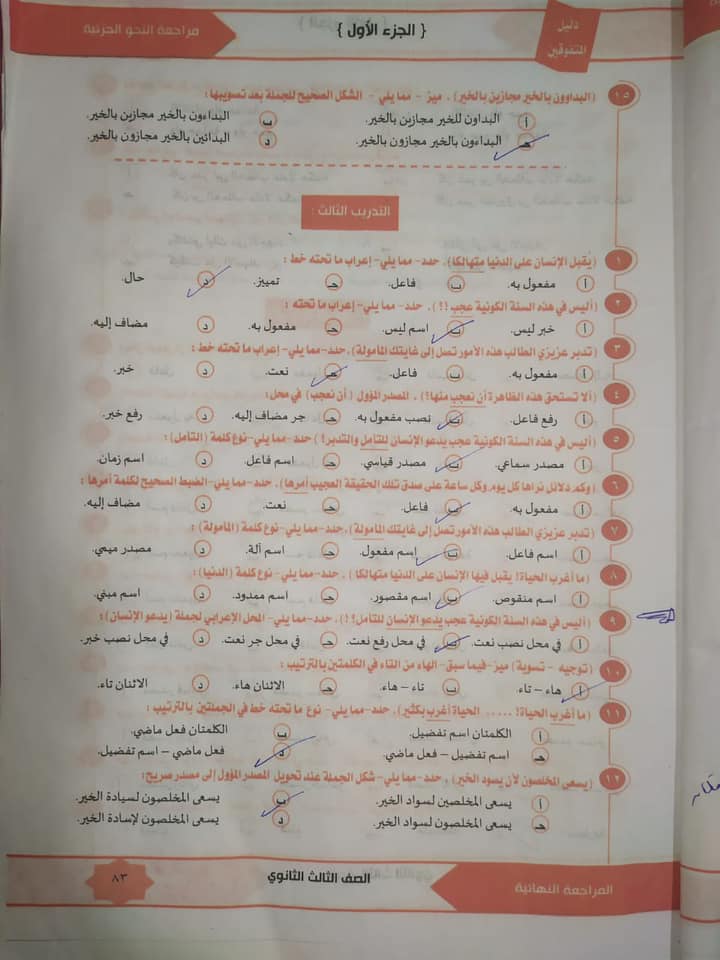 دليل المتفوقين
{ الجزء الأول }
مراجعة النحو الحزنية
١٥ (البداوون بالخير مجازين بالخير). ميز - مما يلي - الشكل الصحيح للجملة بعد تصويبها:
أ البداون للخير مجازين بالخير. ب البداءون بالخير مجازين بالخير.
جـ البداءون بالخير مجازون بالخير. د البدائين بالخير مجازون بالخير.
التدريب الثالث :
١ (يُقبل الإنسان على الدنيا متهالكا). حدد- مما يلي- إعراب ما تحته خط :
أ مفعول به. ب فاعل. جـ تمييز. د حال.
٢ (أليس في هذه السنة الكونية عجب ؟!). حدد- مما يلي- إعراب ما تحته :
أ خبر ليس. ب اسم ليس. جـ مفعول به. د مضاف إليه.
٣ (تدبر عزيزي الطالب هذه الأمور تصل إلى غايتك المأمولة). حدد- مما يلي- إعراب ما تحته خط :
أ مفعول به. ب فاعل. جـ نعت. د خبر.
٤ (ألا تستحق هذه الظاهرة أن نعجب منها؟!). المصدر المؤول ( أن نعجب) في محل:
أ رفع فاعل. ب نصب مفعول به. جـ جر مضاف إليه. د رفع خبر.
٥ (أليس في هذه السنة الكونية عجب يدعو الإنسان للتأمل والتدبر! ) حدد- مما يلي- نوع كلمة (التأمل):
أ مصدر سماعي. ب مصدر قياسي. جـ اسم فاعل. د اسم زمان.
٦ (وكم دلائل نراها كل يوم وكل ساعة على صدق تلك الحقيقة العجيب أمرها). حدد- مما يلي- الضبط الصحيح لكلمة أمرها:
أ مفعول به. ب فاعل. جـ نعت. د مضاف إليه.
٧ (تدبر عزيزي الطالب هذه الأمور تصل إلى غايتك المأمولة). حدد- مما يلي- نوع كلمة (المأمولة) :
أ اسم فاعل. ب اسم مفعول. جـ اسم ألة. د مصدر ميمي.
٨ (ما أغرب الحياة! يقبل فيها الإنسان على الدنيا متهالكا) . حدد- مما يلي- نوع كلمة (الدنيا):
أ اسم منقوص. ب اسم مقصور. جـ اسم ممدود. د اسم مبني.
٩ (أليس في هذه السنة الكونية عجب يدعو الإنسان للتأمل؟ !). حدد- مما يلي- المحل الإعرابي لجملة (يدعو الإنسان):
أ في محل نصب نعت. ب في محل رفع نعت. جـ في محل جر نعت. د في محل نصب خبر.
١٠ (توجيه - تسوية) ميز- فيما سبق- الهاء من التاء في الكلمتين بالترتيب :
أ هاء - تاء. ب تاء - هاء. جـ الاثنان هاء. د الاثنان تاء.
١١ (ما أغرب الحياة! ..... الحياة أغرب بكثير). حدد- مما يلي- نوع ما تحته خط في الجملتين بالترتيب :
أ الكلمتان اسم تفضيل. ب الكلمتان فعل ماضي.
جـ اسم تفضيل - فعل ماضي. د فعل ماضي - اسم تفضيل.
١٢ (يسعى المخلصون لأن يسود الخير) . حدد- مما يلي- شكل الجملة عند تحويل المصدر المؤول إلى مصدر صريح:
أ يسعى المخلصين لسواد الخير. ب يسعى المخلصون لسيادة الخير.
جـ يسعى المخلصون لسواد الخير. د يسعى المخلصون لإسادة الخير.
المراجعة النهائية
الصف الثالث الثانوي
٨٣